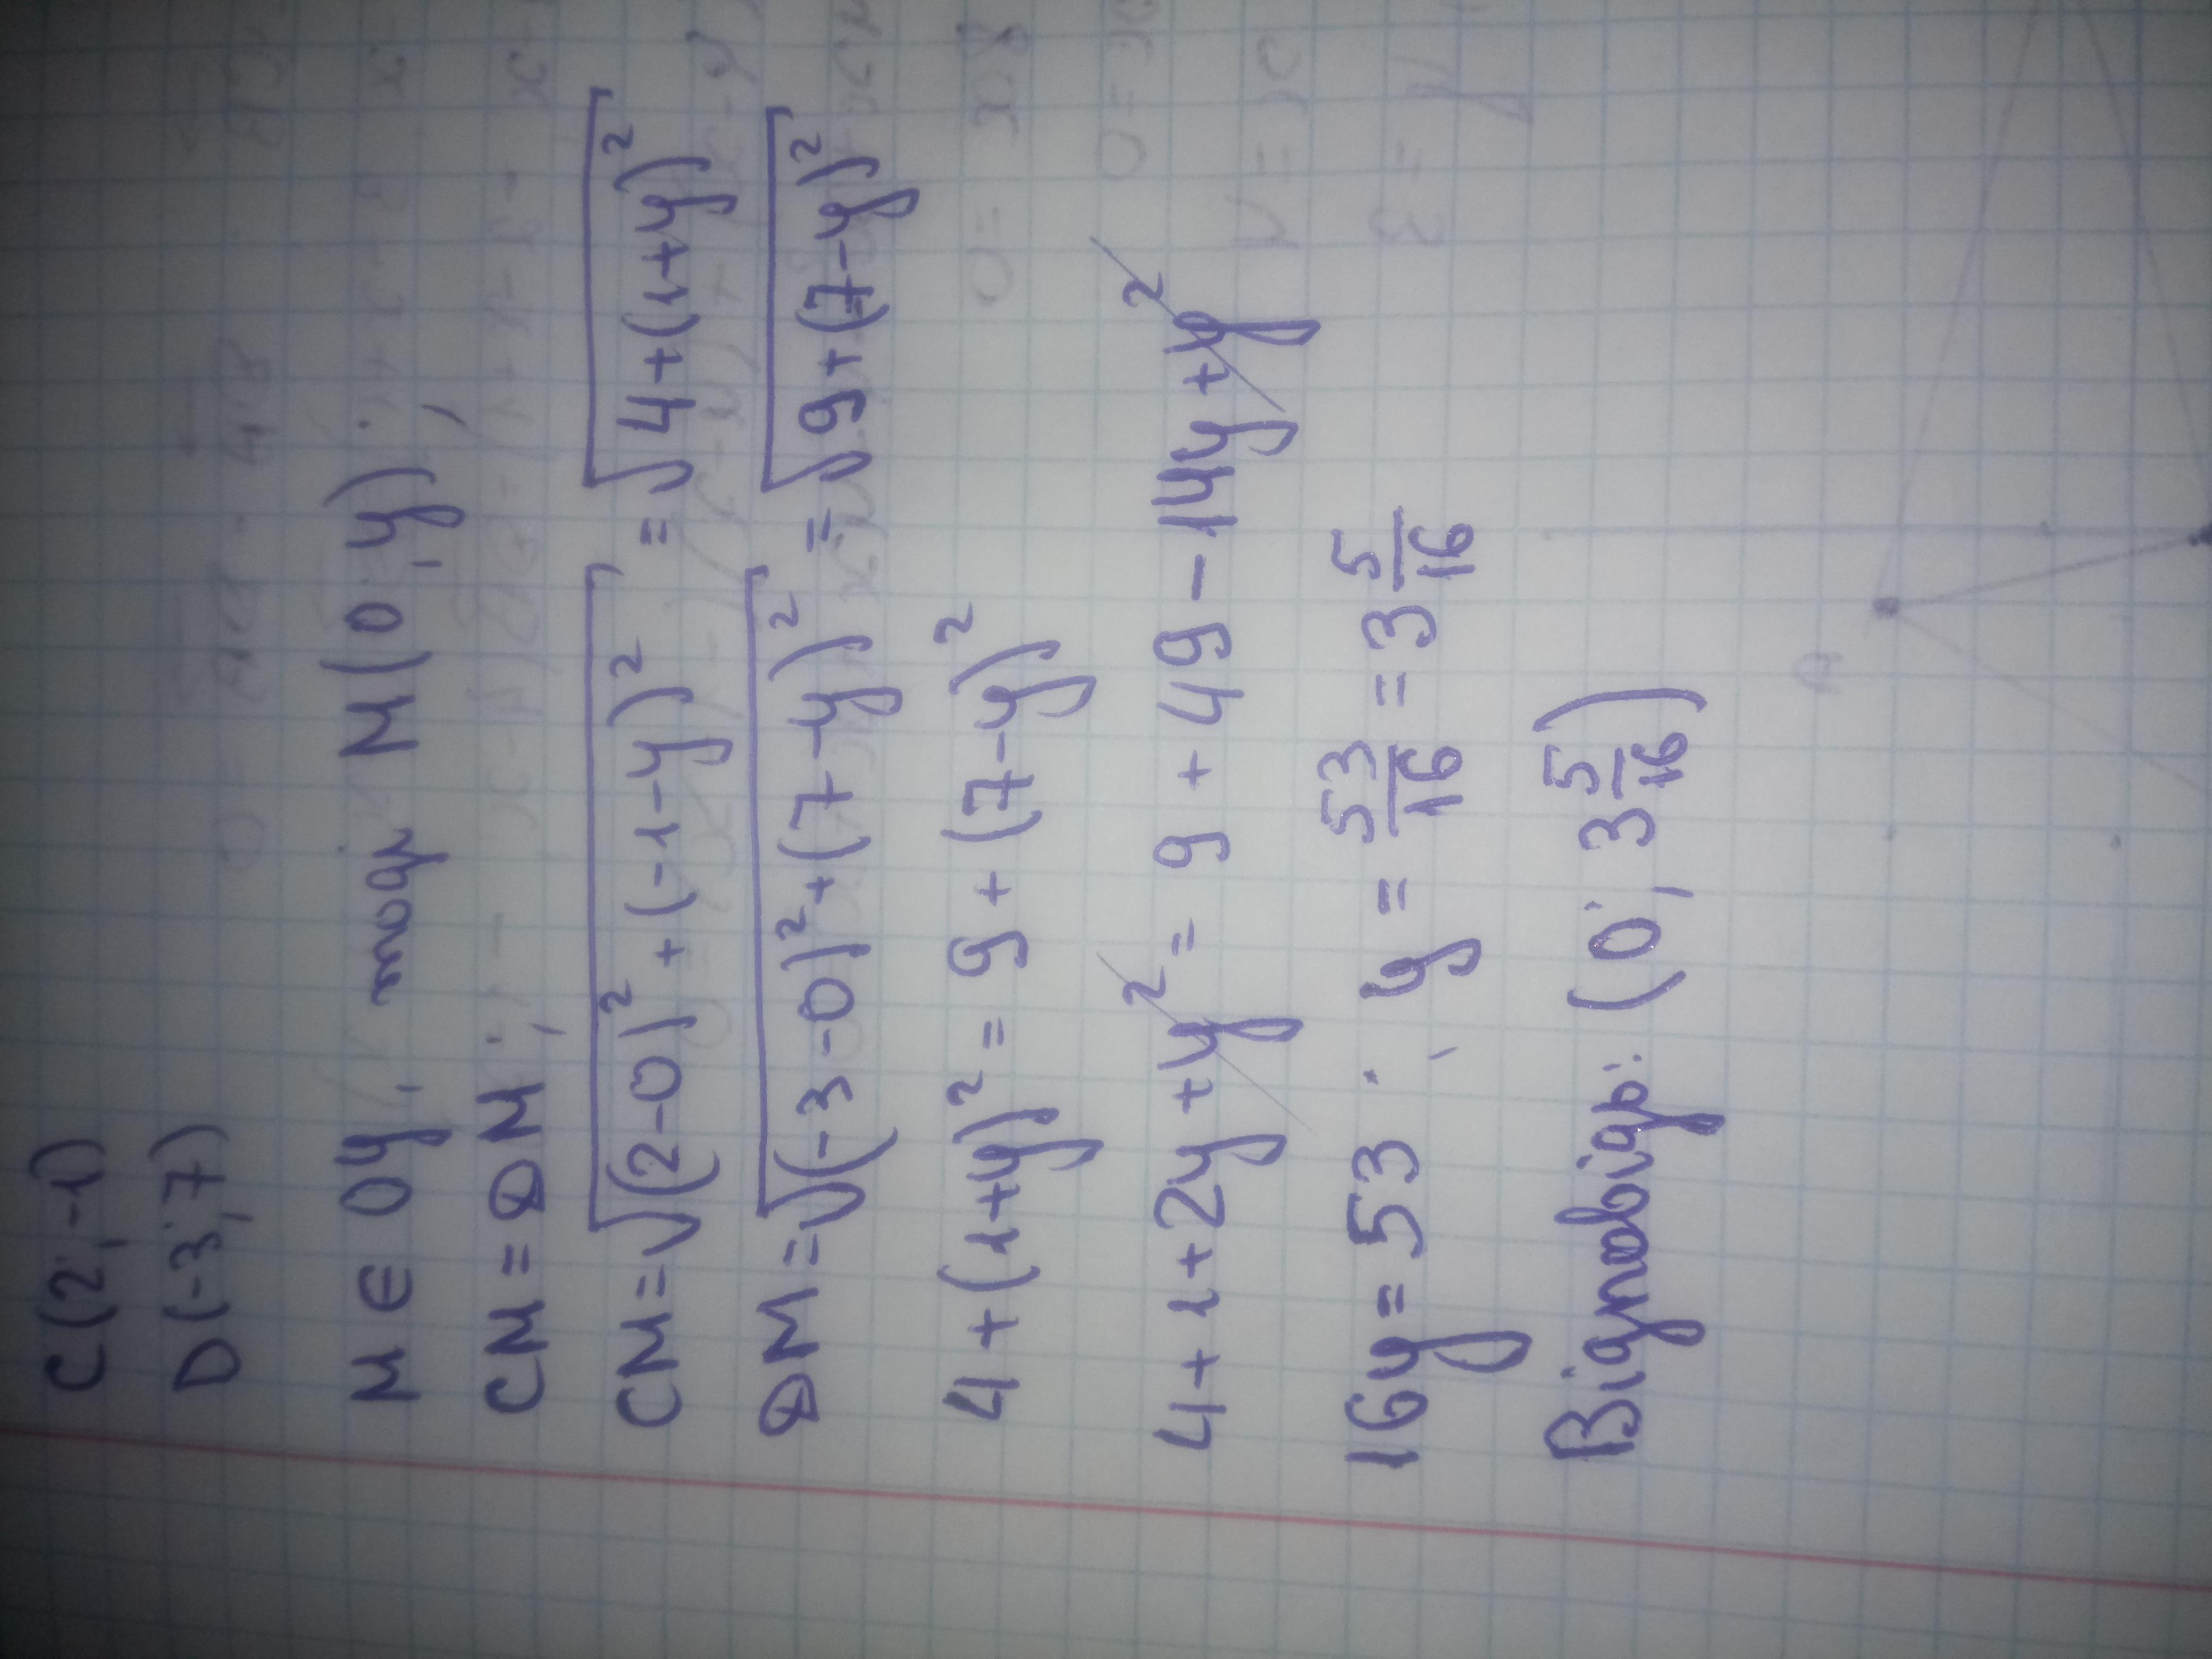 C(2;-1)
D(-3;7)
M ∈ Oy, тоді M(0;y);
CM = DM;
CM = √((2-0)² + (-1-y)²) = √(4+(1+y)²)
DM = √((-3-0)² + (7-y)²) = √(9+(7-y)²)
4+(1+y)² = 9+(7-y)²
4+1+2y+y² = 9+49-14y+y²
16y = 53; y = 53/16 = 3 5/16
Відповідь: (0; 3 5/16)